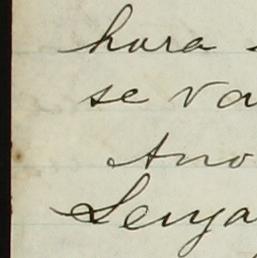 hora
se va
Ano
Lenya